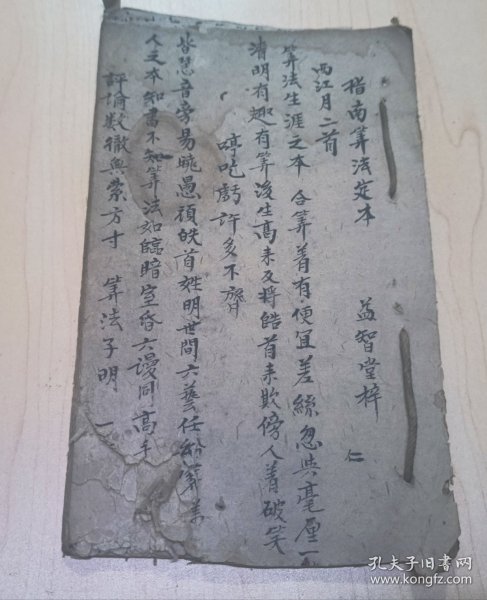 指南筭法定本　益智堂梓　仁
西江月二首
筭法生涯之本　合筭着有便宜差絲忽與毫厘一
清明有趣有筭後生高未及将皓首来欺傍人着破笑
哼吃虧許多不
皆慧音旁易曉愚頑的首姓明世間六藝任紛 筭是
人之本知書不知筭法如臨暗室昏六謾同高手
評論数徹無索方寸　筭法子明　一
孔夫子旧书网
www.kongfz.com